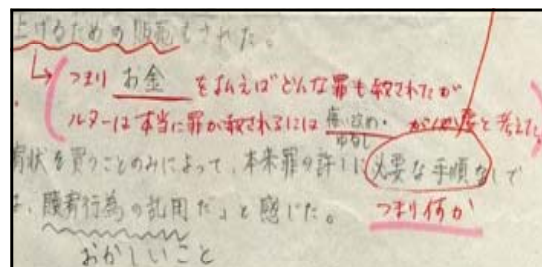 上げるための販売もされた。
つまり お金 を払えばどんな罪も赦されたが
ルターは本当に罪が赦されるには 悔い改め・ゆるし が必要と考えた
宥状を買うことのみによって、本来罪の許しに必要な手順なしで
、贖宥行為の乱用だ」と感じた。 つまり何か
おかしいこと